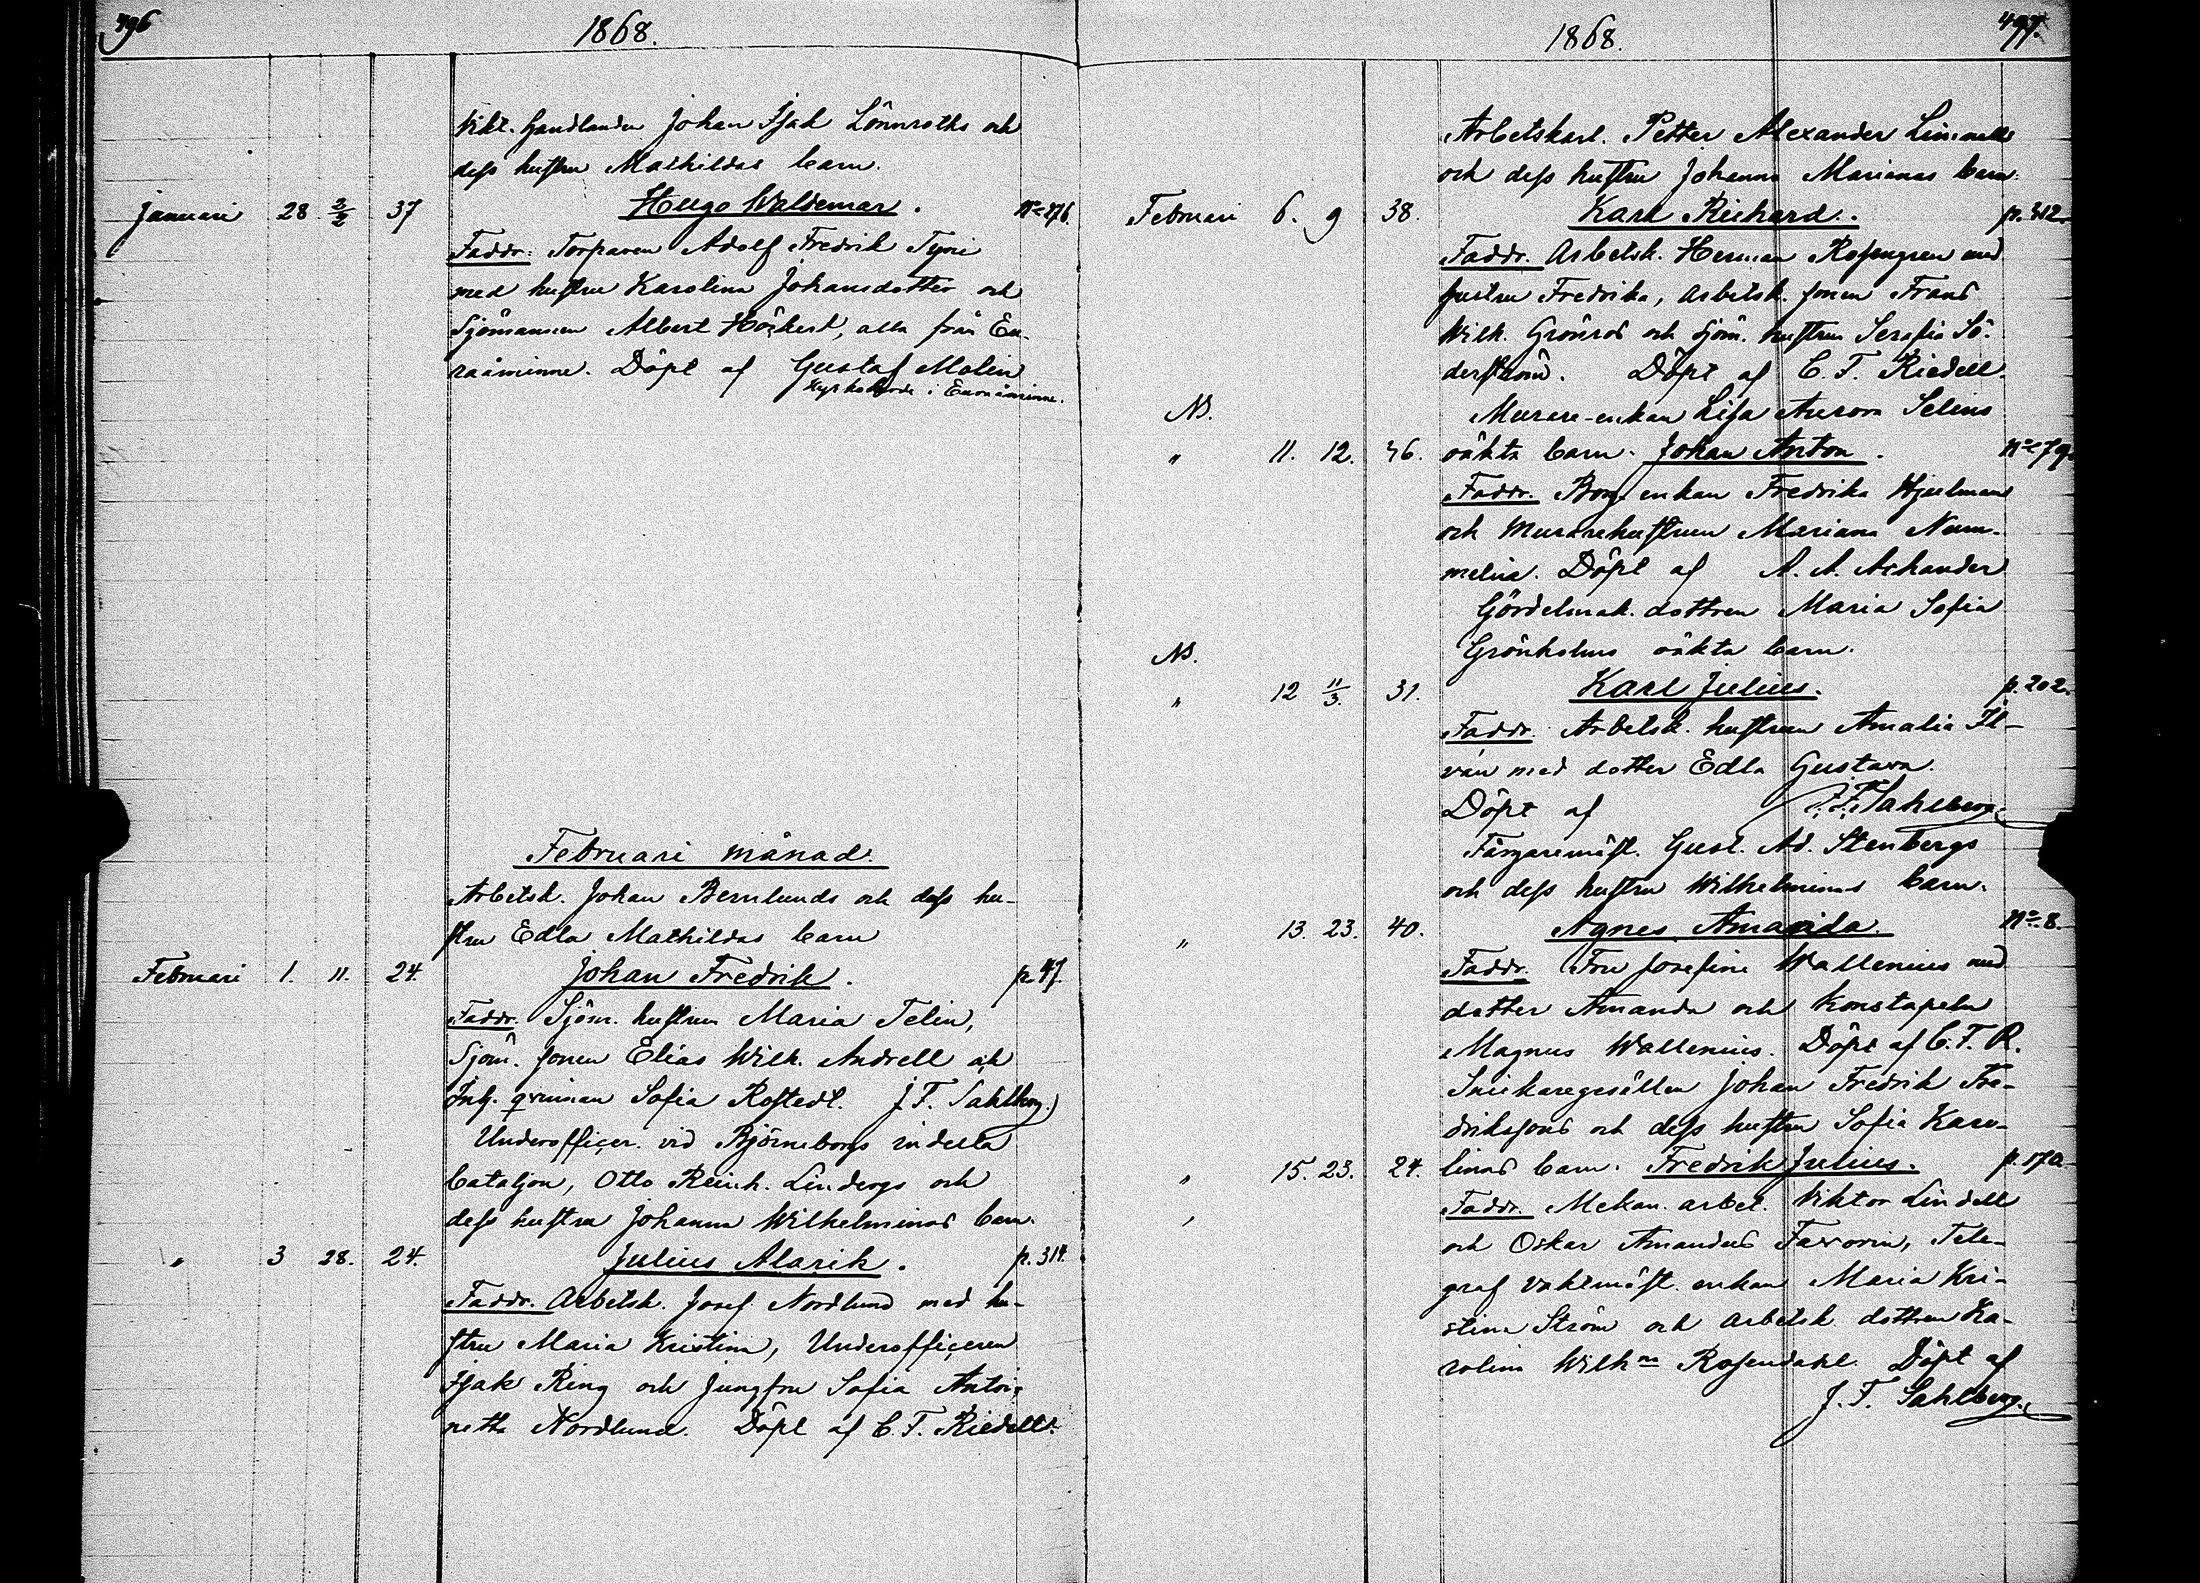 496
1868.
Vikt. Handlanden Johan Isak Lönnroths och
dess hustru Mathildas barn.
Januari 28 2/2 37 Hugo Waldemar. No 276.
Faddr: Torparen Adolf Fredrik Tyni
med hustru Karolina Johansdotter och
Sjömannen Albert Höckert, alla från Eu-
raåminne. Döpt af Gustaf Molin
Kyrkoherde i Euraåminne.
Februari månad.
Arbetsk. Johan Bernlunds och dess hu-
stru Edla Mathildas barn
Februari 1. 11. 24. Johan Fredrik. p. 47.
Faddr. Sjöm. hustrun Maria Telin,
Sjöm. sonen Elias Wilh. Andrell och
Inh. qvinnan Sofia Rostedt. J. F. Sahlberg.
Underofficer. vid Björneborgs indelta
bataljon, Otto Reinh. Lindergs och
dess hustru Johanna Wilhelminas barn.
" 3 28. 24. Julius Alarik. p. 314.
Faddr. Arbetsk. Josef Nordlund med hu-
stru Maria Kristina, Underofficeren
Isak Ring och Jungfru Sofia Antoi-
netta Nordlund. Döpt af C. F. Riedell.
497.
1868.
Arbetskarl. Petter Alexander Linnells
och dess hustru Johanna Marianas barn.
Februari 6. 9 38. Karl Richard. p. 312.
Faddr. Arbetsk. Herman Rosengren med
hustru Fredrika, arbetsk. sonen Frans
Wilh. Grönros och sjöm. hustrun Serafia Sö-
derström. Döpt af C. F. Riedell.
NB. Murare-enkan Lisa Aurora Selins
" 11. 12. 46. oäkta barn. Johan Anton. No 79.
Faddr. Borg. enkan Fredrika Hjelman
och Murarehustrun Mariana Num-
melin. Döpt af A. A. Ashander
Gördelmak. dottren Maria Sofia
NB. Grönholms oäkta barn.
" 12 11/3. 31. Karl Julius. p. 202.
Faddr. Arbetsk. hustrun Amalia Il-
vän med dotter Edla Gustava.
Döpt af J. F. Sahlberg.
Färgaremäst. Gust. Ad. Stenbergs
och dess hustru Wilhelminas barn.
" 13. 23. 40. Agnes Amanda. No 8.
Faddr. Fru Josefine Wallenius med
dotter Amanda och Konstapeln
Magnus Wallenius. Döpt af C. F. R.
Snickaregesällen Johan Fredrik Fre-
drikssons och dess hustru Sofia Karo-
" 15. 23. 24. linas barn. Fredrik Julius. p. 170.
Faddr. Mekan. arbet. Viktor Lindell
och Oskar Amandus Favorin, Tele-
graf vaktmäst. enkan Maria Kri-
stina Ström och arbetsk. dottren Ka-
rolina Wilhna Rosendahl. Döpt af
J. F. Sahlberg.